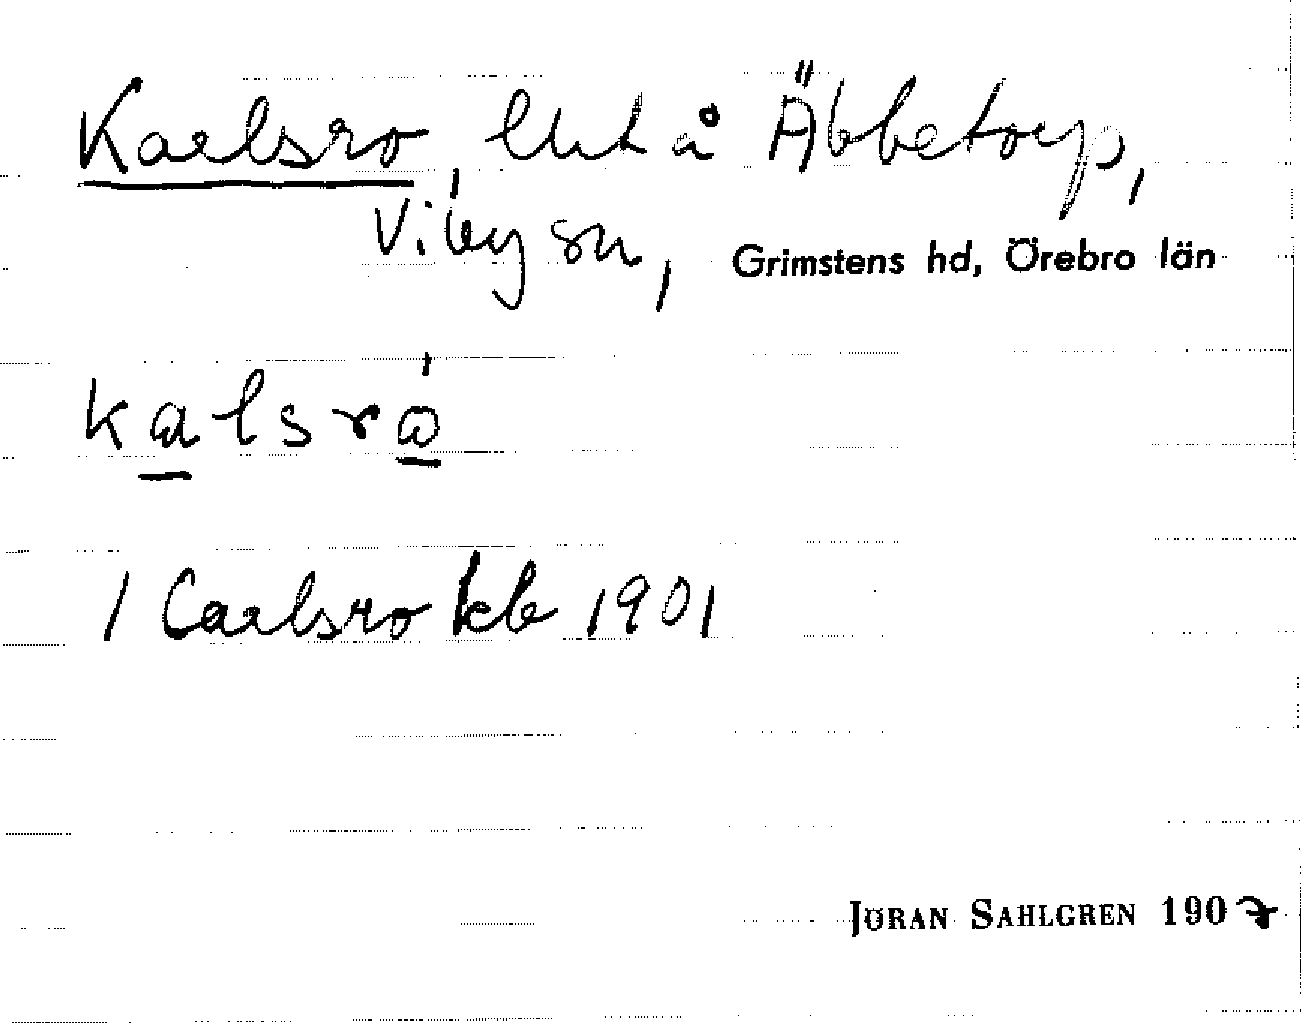 Karlsro, lht å Äbbetorp,
Viby sn, Grimstens hd, Örebro län
kalsró
1 Carlsro kb 1901
JÖRAN SAHLGREN 1907